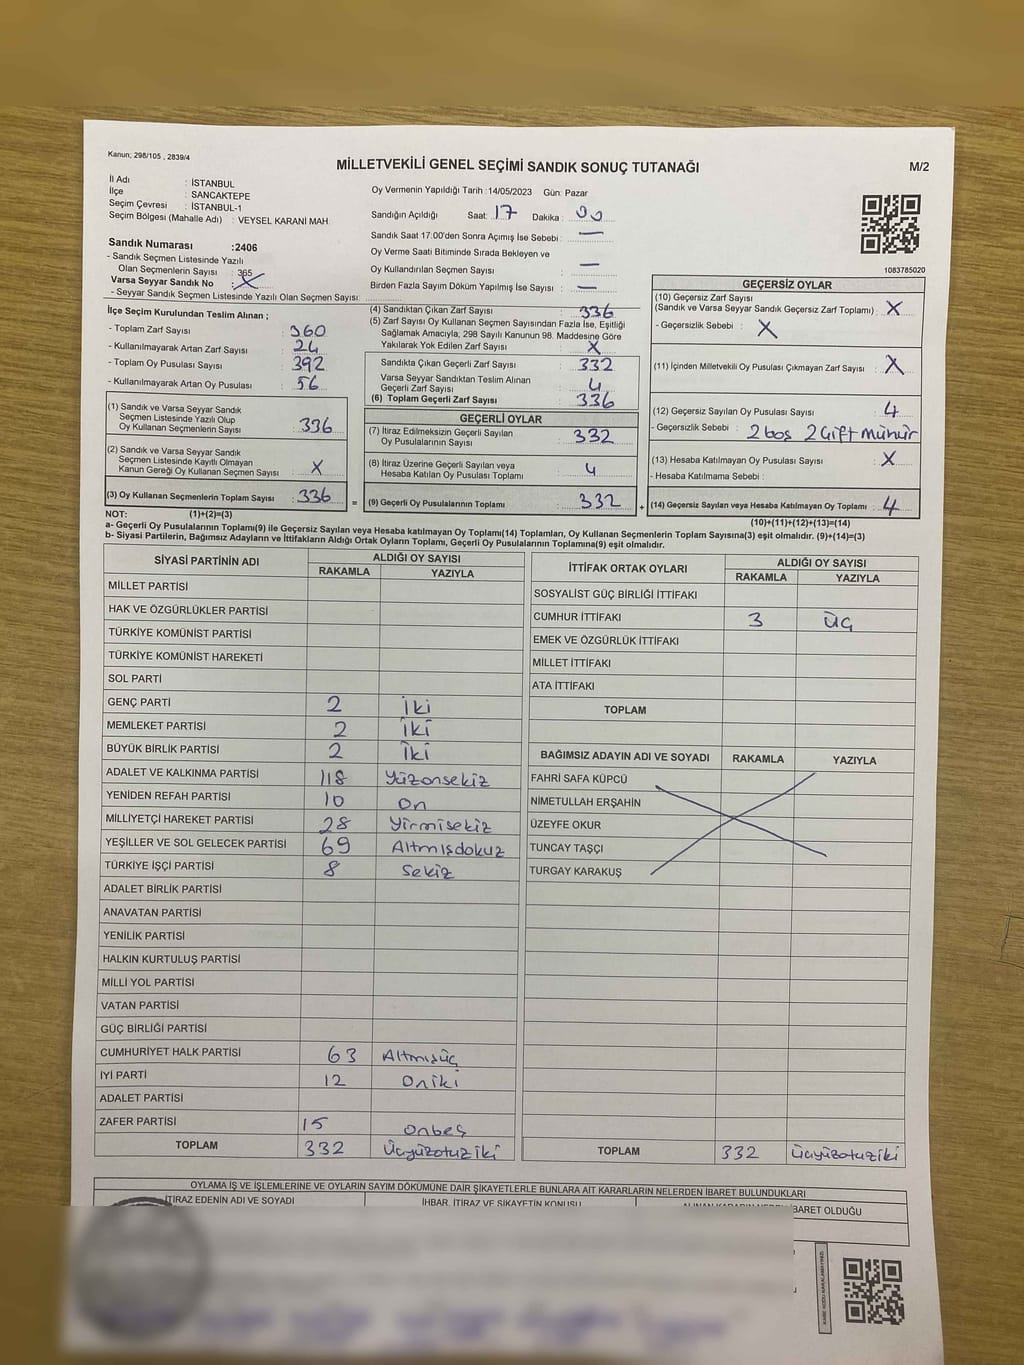 Kanun; 298/105 , 2839/4
MİLLETVEKİLİ GENEL SEÇİMİ SANDIK SONUÇ TUTANAĞI
M/2
İl Adı : İSTANBUL
İlçe : SANCAKTEPE
Seçim Çevresi : İSTANBUL-1
Seçim Bölgesi (Mahalle Adı) : VEYSEL KARANİ MAH.
Sandık Numarası :2406
- Sandık Seçmen Listesinde Yazılı
Olan Seçmenlerin Sayısı : 365
Varsa Seyyar Sandık No : X
- Seyyar Sandık Seçmen Listesinde Yazılı Olan Seçmen Sayısı:
Oy Vermenin Yapıldığı Tarih :14/05/2023 Gün: Pazar
Sandığın Açıldığı Saat: 17 Dakika : 00
Sandık Saat 17:00'den Sonra Açımış İse Sebebi : —
Oy Verme Saati Bitiminde Sırada Bekleyen ve
Oy Kullandırılan Seçmen Sayısı : —
Birden Fazla Sayım Döküm Yapılmış İse Sayısı : —
1083785020
İlçe Seçim Kurulundan Teslim Alınan ;
- Toplam Zarf Sayısı : 360
- Kullanılmayarak Artan Zarf Sayısı : 24
- Toplam Oy Pusulası Sayısı : 392
- Kullanılmayarak Artan Oy Pusulası : 56
(1) Sandık ve Varsa Seyyar Sandık
Seçmen Listesinde Yazılı Olup
Oy Kullanan Seçmenlerin Sayısı : 336
(2) Sandık ve Varsa Seyyar Sandık
Seçmen Listesinde Kayıtlı Olmayan
Kanun Gereği Oy Kullanan Seçmen Sayısı : X
(3) Oy Kullanan Seçmenlerin Toplam Sayısı : 336
(4) Sandıktan Çıkan Zarf Sayısı : 336
(5) Zarf Sayısı Oy Kullanan Seçmen Sayısından Fazla İse, Eşitliği
Sağlamak Amacıyla; 298 Sayılı Kanunun 98. Maddesine Göre
Yakılarak Yok Edilen Zarf Sayısı : X
Sandıkta Çıkan Geçerli Zarf Sayısı : 332
Varsa Seyyar Sandıktan Teslim Alınan
Geçerli Zarf Sayısı : 4
(6) Toplam Geçerli Zarf Sayısı : 336
GEÇERLİ OYLAR
(7) İtiraz Edilmeksizin Geçerli Sayılan
Oy Pusulalarının Sayısı : 332
(8) İtiraz Üzerine Geçerli Sayılan veya
Hesaba Katılan Oy Pusulası Toplamı : 4
= (9) Geçerli Oy Pusulalarının Toplamı : 332 +
GEÇERSİZ OYLAR
(10) Geçersiz Zarf Sayısı
(Sandık ve Varsa Seyyar Sandık Geçersiz Zarf Toplamı) : X
- Geçersizlik Sebebi : X
(11) İçinden Milletvekili Oy Pusulası Çıkmayan Zarf Sayısı : X
(12) Geçersiz Sayılan Oy Pusulası Sayısı : 4
- Geçersizlik Sebebi : 2 boş 2 Çift Mühür
(13) Hesaba Katılmayan Oy Pusulası Sayısı : X
- Hesaba Katılmama Sebebi :
(14) Geçersiz Sayılan veya Hesaba Katılmayan Oy Toplamı : 4
NOT: (1)+(2)=(3)
(10)+(11)+(12)+(13)=(14)
a- Geçerli Oy Pusulalarının Toplamı(9) ile Geçersiz Sayılan veya Hesaba katılmayan Oy Toplamı(14) Toplamları, Oy Kullanan Seçmenlerin Toplam Sayısına(3) eşit olmalıdır. (9)+(14)=(3)
b- Siyasi Partilerin, Bağımsız Adayların ve İttifakların Aldığı Ortak Oyların Toplamı, Geçerli Oy Pusulalarının Toplamına(9) eşit olmalıdır.
SİYASİ PARTİNİN ADI ALDIĞI OY SAYISI
RAKAMLA YAZIYLA
MİLLET PARTİSİ
HAK VE ÖZGÜRLÜKLER PARTİSİ
TÜRKİYE KOMÜNİST PARTİSİ
TÜRKİYE KOMÜNİST HAREKETİ
SOL PARTİ
GENÇ PARTİ 2 İki
MEMLEKET PARTİSİ 2 İki
BÜYÜK BİRLİK PARTİSİ 2 İki
ADALET VE KALKINMA PARTİSİ 118 Yüzonsekiz
YENİDEN REFAH PARTİSİ 10 On
MİLLİYETÇİ HAREKET PARTİSİ 28 Yirmisekiz
YEŞİLLER VE SOL GELECEK PARTİSİ 69 Altmışdokuz
TÜRKİYE İŞÇİ PARTİSİ 8 Sekiz
ADALET BİRLİK PARTİSİ
ANAVATAN PARTİSİ
YENİLİK PARTİSİ
HALKIN KURTULUŞ PARTİSİ
MİLLİ YOL PARTİSİ
VATAN PARTİSİ
GÜÇ BİRLİĞİ PARTİSİ
CUMHURİYET HALK PARTİSİ 63 Altmışüç
İYİ PARTİ 12 Oniki
ADALET PARTİSİ
ZAFER PARTİSİ 15 Onbeş
TOPLAM 332 Üçyüzotuziki
İTTİFAK ORTAK OYLARI ALDIĞI OY SAYISI
RAKAMLA YAZIYLA
SOSYALİST GÜÇ BİRLİĞİ İTTİFAKI
CUMHUR İTTİFAKI 3 Üç
EMEK VE ÖZGÜRLÜK İTTİFAKI
MİLLET İTTİFAKI
ATA İTTİFAKI
TOPLAM
BAĞIMSIZ ADAYIN ADI VE SOYADI RAKAMLA YAZIYLA
FAHRİ SAFA KÜPCÜ
NİMETULLAH ERŞAHİN
ÜZEYFE OKUR
TUNCAY TAŞÇI
TURGAY KARAKUŞ
TOPLAM 332 Üçyüzotuziki
OYLAMA İŞ VE İŞLEMLERİNE VE OYLARIN SAYIM DÖKÜMÜNE DAİR ŞİKAYETLERLE BUNLARA AİT KARARLARIN NELERDEN İBARET BULUNDUKLARI
İTİRAZ EDENİN ADI VE SOYADI
İHBAR, İTİRAZ VE ŞİKAYETİN KONUSU
ALINAN KARARIN NEDEN İBARET OLDUĞU